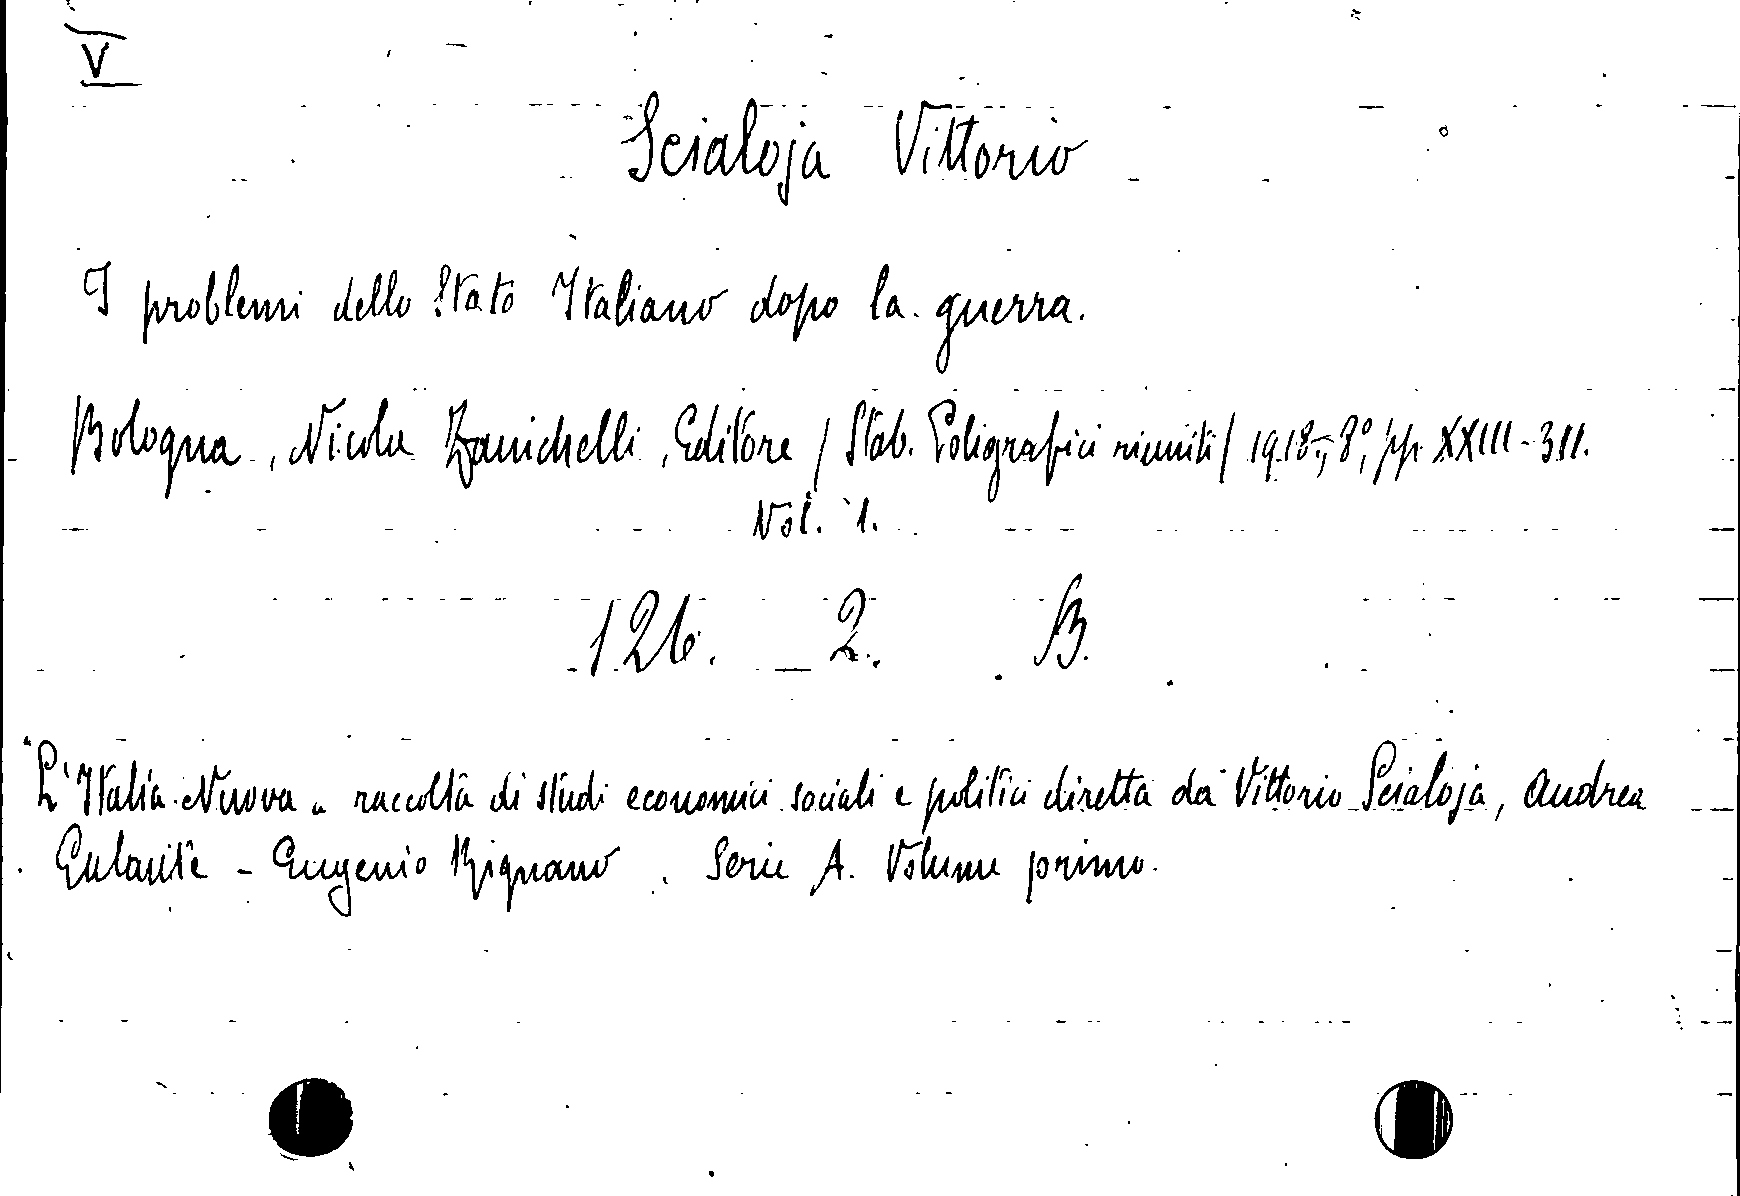 V
Scialoja Vittorio
I problemi dello Stato Italiano dopo la guerra.
Bologna, Nicola Zanichelli, Editore / Stab. Poligrafici riuniti / 1918-, 8°, pp. XXIII-311.
Vol. 1.
126. 2. B.
"L'Italia Nuova" raccolta di studi economici sociali e politici diretta da Vittorio Scialoja, Andrea
- Eugenio Rignano. Serie A. Volume primo.